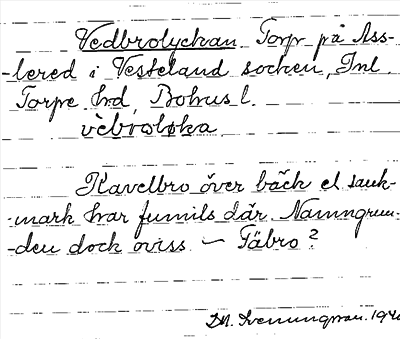 Vedbrolyckan. Torp på Ass-
-lered i Vesteland socken, Inl.
Torpe hrd, Bohus l.
vèbroløka.
Kavelbro över bäck el sank-
-mark har funnits där. Namngrun-
-den dock oviss – Fäbro?
D.A. Svenungsson. 194